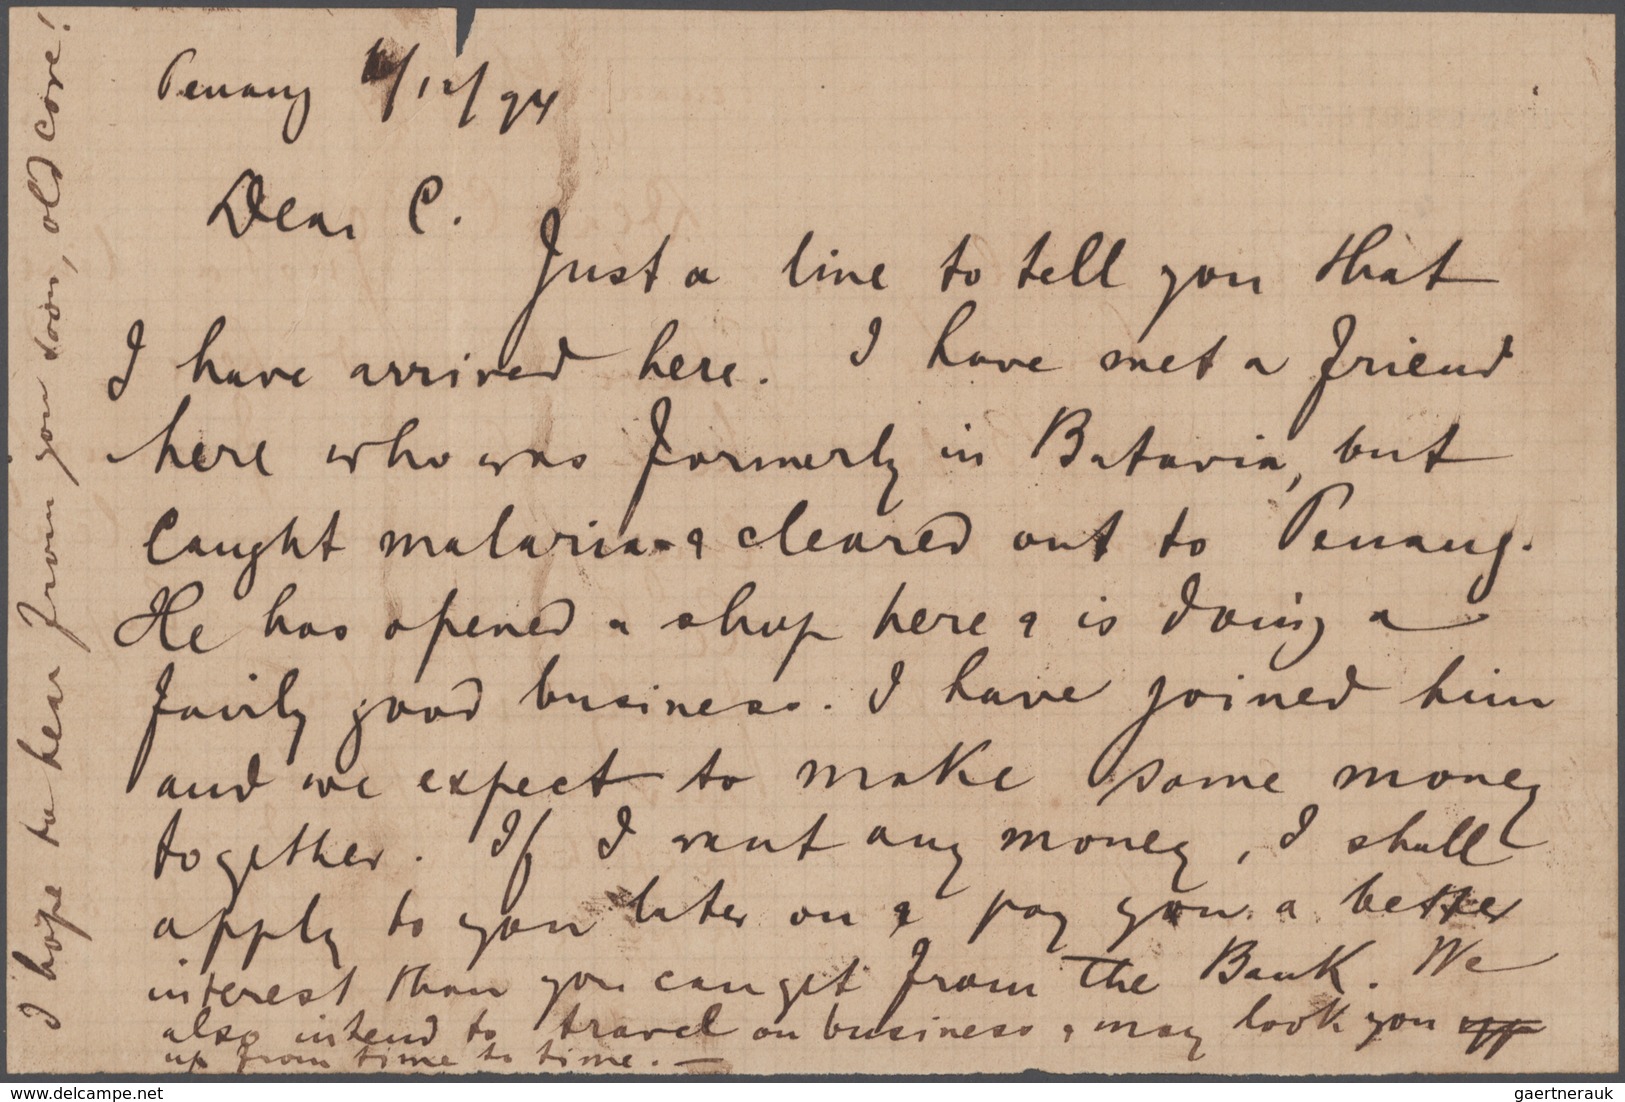 Penang 6/12/94
Dear C.
Just a line to tell you that
I have arrived here. I have met a friend
here who was formerly in Batavia, but
caught malaria & cleared out to Penang.
He has opened a shop here & is doing a
fairly good business. I have joined him
and we expect to make some money
together. If I want any money, I shall
apply to you later on & pay you a better
interest than you can get from the Bank. We
also intend to travel on business & may look you
up from time to time. —
I hope to hear from you soon, old cove!
gaertnerauk